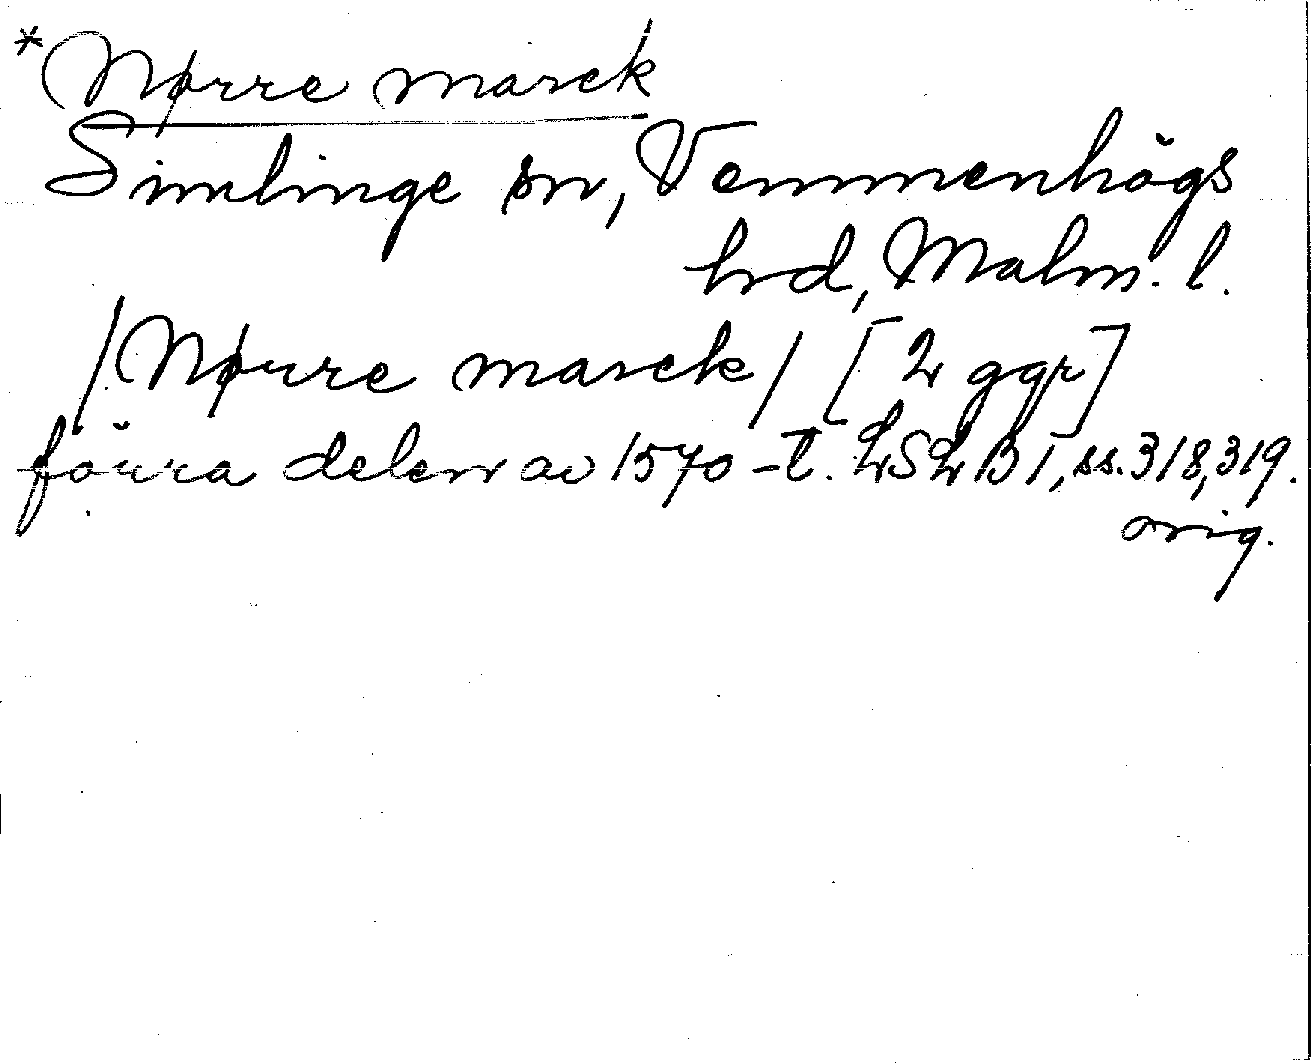 *Nørre marck
Simlinge sn, Vemmenhögs
hrd, Malm. l.
/Nørre marck/ [2 ggr]
förra delen av 1570-t. LSLB I, ss. 318, 319.
orig.